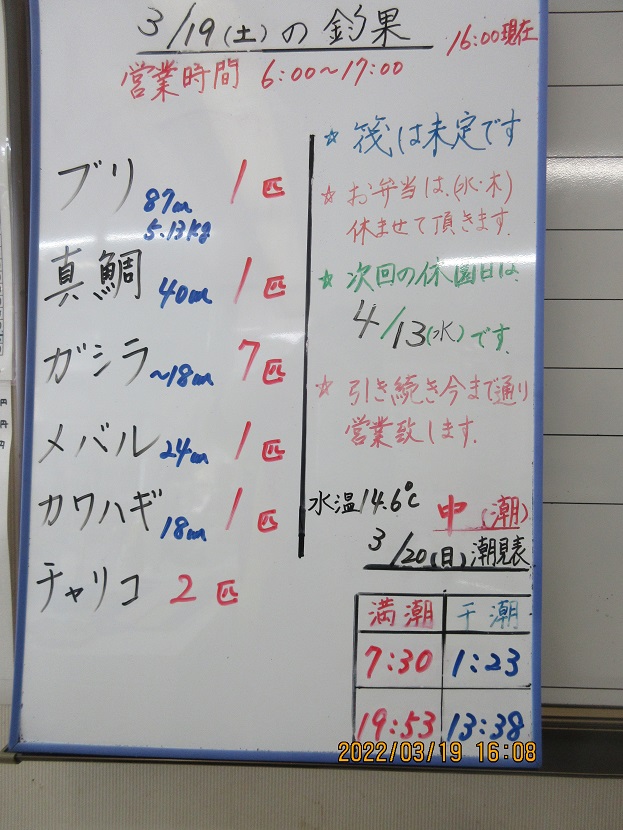 3/19(土)の釣果
16:00現在
営業時間 6:00~17:00
ブリ 87cm 1匹
5.13kg
真鯛 40cm 1匹
ガシラ ~18cm 7匹
メバル 24cm 1匹
カワハギ 18cm 1匹
チャリコ 2匹
☆筏は未定です
☆お弁当は、(水・木)
休ませて頂きます。
☆次回の休園日は、
4/13(水)です。
☆引き続き今まで通り
営業致します。
水温14.6℃ 中(潮)
3/20(日)潮見表
満潮 干潮
7:30 1:23
19:53 13:38
2022/03/19 16:08